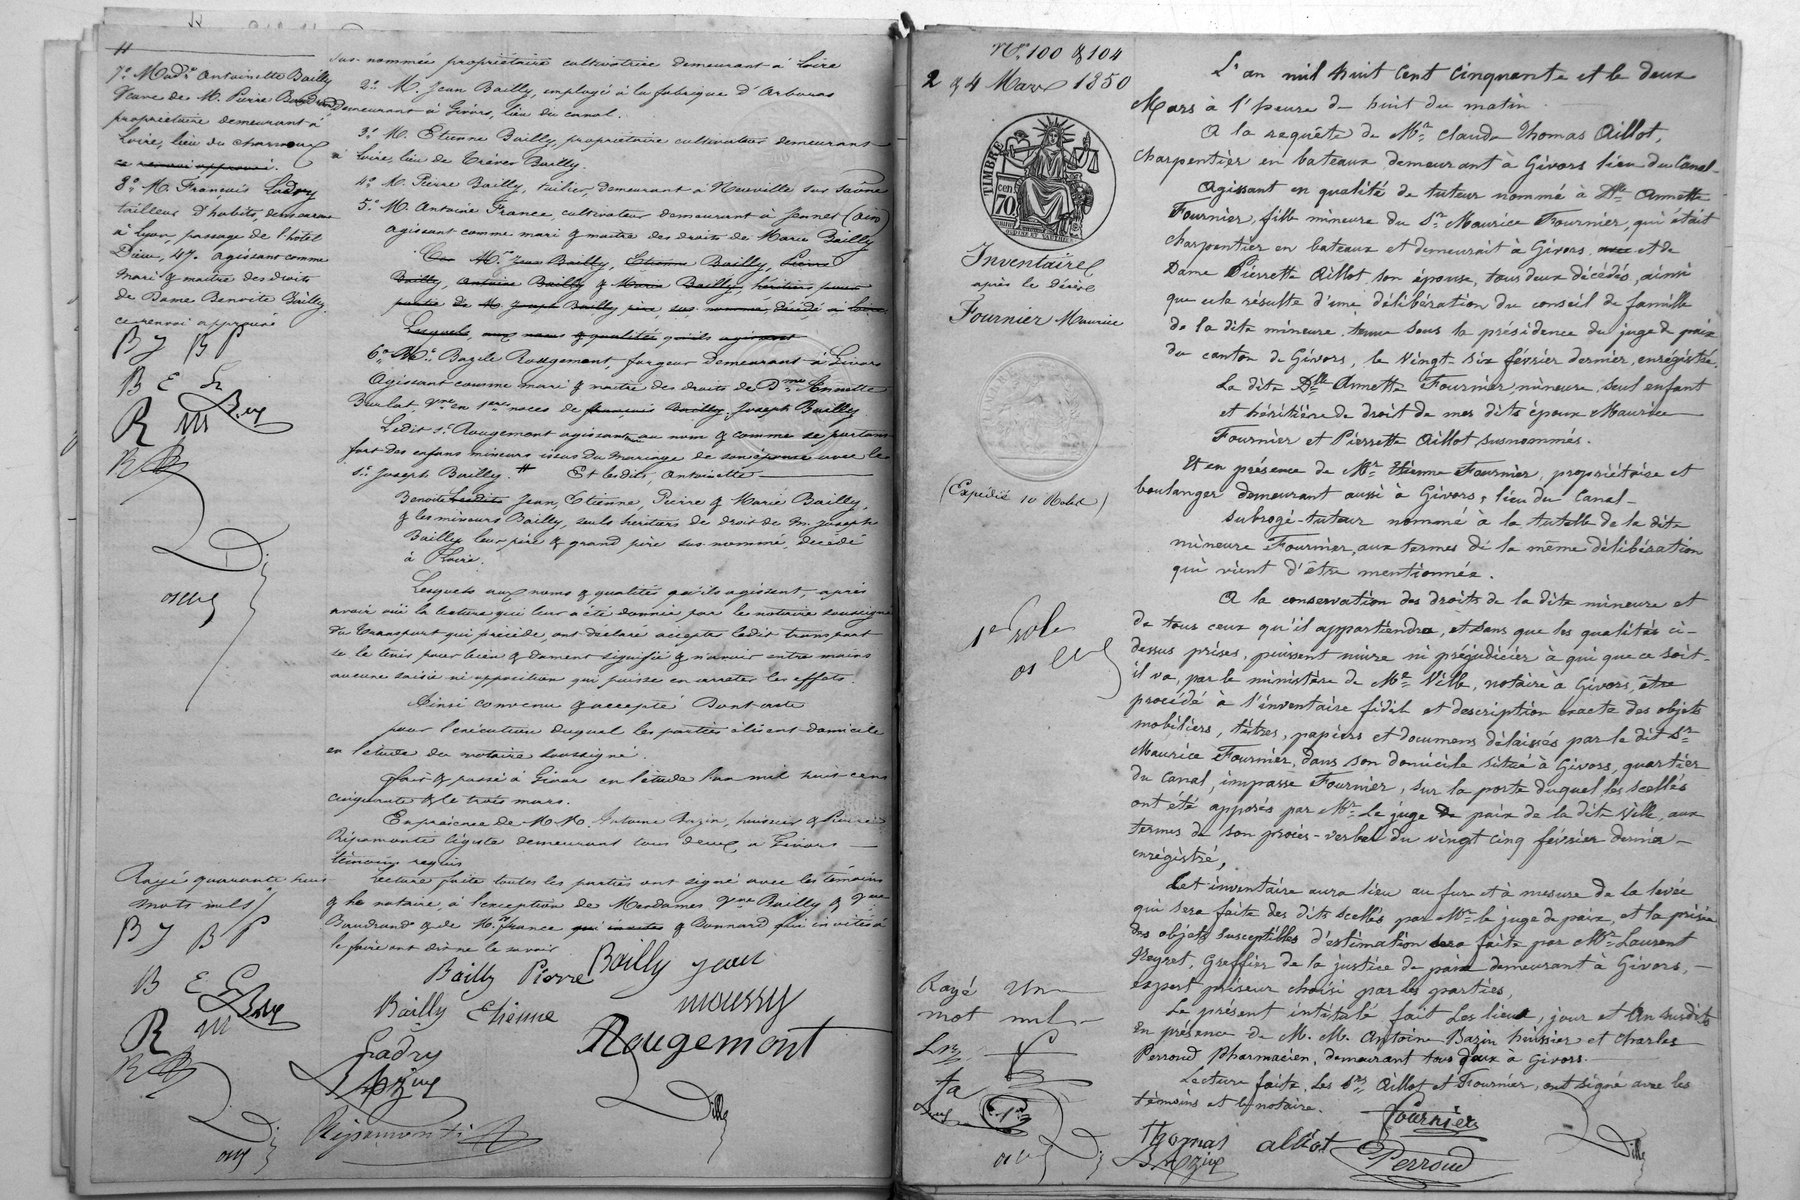 7.o Mad.e Antoinette Bailly
Veuve de M. Pierre Baudrand
propriétaire demeurant à
Loire, lieu du charmoux
ce renvoi approuvé.
8.o M. François Ladry
tailleur d'habits, demeurant
à Lyon, passage de l'hôtel
Dieu, 47. agissant comme
mari & maitre des droits
de Dame Benoite Bailly
ce renvoi approuvé
B J B P
B E L
R M
sus-nommée propriétaire cultivatrice demeurant à Loire
2.o M. Jean Bailly, employé à la fabrique d'Arboras
demeurant à Givors, lieu du canal.
3.o M. Etienne Bailly, propriétaire cultivateur demeurant
à Loire, lieu de Trèves Bailly.
4.o M. Pierre Bailly, tuilier, demeurant à Neuville sur Saône
5.o M. Antoine France, cultivateur demeurant à Jonnet (ain)
agissant comme mari & maitre des droits de Marie Bailly
M.rs Jean Bailly, Etienne Bailly, Pierre
Bailly, Antoine Bailly & Marie Bailly, héritiers pour
partie de M. Joseph Bailly père sus-nommé, décédé à Loire.
Lesquels aux noms & qualités qu'ils agissent
6.o M. Bazile Rougemont, forgeur demeurant à Givors
Agissant comme mari & maitre des droits de D.me Annette
Burlat, V.ve en 1.eres noces de françois Bailly Joseph Bailly
Ledit s.r Rougemont agissant au nom & comme se portant
fort des enfans mineurs issus du mariage de son épouse avec le
s.r Joseph Bailly. # Et lesdits, Antoinette
Benoite Lesdits Jean, Etienne, Pierre & Marie Bailly,
& les mineurs Bailly, seuls héritiers de droit de M. Joseph
Bailly leur père & grand père sus-nommé, décédé
à Loire.
Lesquels aux noms & qualités qu'ils agissent, après
avoir ouï la lecture qui leur a été donnée par le notaire soussigné
du transport qui précède, ont déclaré accepter ledit transport
se le tenir pour bien & dument signifié & n'avoir entre mains
aucune saisie ni opposition qui puisse en arrêter les effets.
Ainsi convenu & accepté Dont acte
pour l'exécution duquel les parties élisent domicile
en l'étude du notaire soussigné.
Fait & passé à Givors en l'étude l'an mil huit cent
cinquante & le trois mars.
En présence de M.M. Antoine Bazin, huissier & Pierre
Ripamonti légiste demeurant tous deux à Givors
témoins requis
Lecture faite toutes les parties ont signé avec les témoins
& le notaire, à l'exception de Mesdames V.ve Bailly & V.ve
Baudrand & de M.rs France qui invités & Bonnard qui invités à
le faire ont dit ne le savoir
Rayé quarante huit
mots nuls
B J B P
B E
R M
Bailly Pierre Bailly jean
Bailly Etienne moussy
Ladry Rougemont
Bazin
Ripamonti
Ville
N.os 100 & 104
2 & 4 Mars 1850
TIMBRE
cen
70
Inventaire
après le décès
Fournier Maurice
(Expédié 10 Roles)
1.er role
L'an mil huit cent cinquante et le deux
Mars à l'heure de huit du matin
A la requête de M.r Claude Thomas Aillot,
charpentier en bateaux demeurant à Givors lieu du Canal
Agissant en qualité de tuteur nommé à D.lle Annette
Fournier, fille mineure du S.r Maurice Fournier, qui était
charpentier en bateaux et demeurait à Givors et de
Dame Pierrette Aillot son épouse, tous deux décédés, ainsi
que cela résulte d'une délibération du conseil de famille
de la dite mineure, tenue sous la présidence du juge de paix
du canton de Givors, le vingt-six février dernier, enrégistré.
La dite D.lle Annette Fournier, mineure, seul enfant
et héritière de droit de mes dits époux Maurice
Fournier et Pierrette Aillot susnommés.
Et en présence de M.r Etienne Fournier, propriétaire et
boulanger demeurant aussi à Givors, lieu du Canal
subrogé-tuteur nommé à la tutelle de la dite
mineure Fournier, aux termes de la même délibération
qui vient d'être mentionnée.
A la conservation des droits de la dite mineure et
de tous ceux qu'il appartiendra, et sans que les qualités ci-
dessus prises, puissent nuire ni préjudicier à qui que ce soit-
il va, par le ministère de M.e Ville, notaire à Givors, être
procédé à l'inventaire fidèl et description exacte des objets
mobiliers, titres, papiers et documens délaissés par le dit S.r
Maurice Fournier, dans son domicile situé à Givors, quartier
du Canal, impasse Fournier, sur la porte duquel les scellés
ont été apposés par M.r Le juge de paix de la dite Ville, aux
termes de son procès-verbal du vingt cinq février dernier
enrégistré,
Cet inventaire aura lieu au fur et à mesure de la levée
qui sera faite des dits scellés par M.r le juge de paix, et la prisée
des objets susceptibles d'estimation sera faite par M.r Laurent
Neyret, Greffier de la justice de paix demeurant à Givors,
expert priseur choisi par les parties,
Le présent intitulé fait les lieux, jour et An susdits
en présence de M.M. Antoine Bazin huissier et Charles
Perroud Pharmacien, demeurant tous deux à Givors.
Lecture faite, Les S.rs Aillot et Fournier, ont signé avec les
témoins et le notaire.
Rayé un
mot nul
Fournier
Thomas alliot
Bazin Perroud
Ville